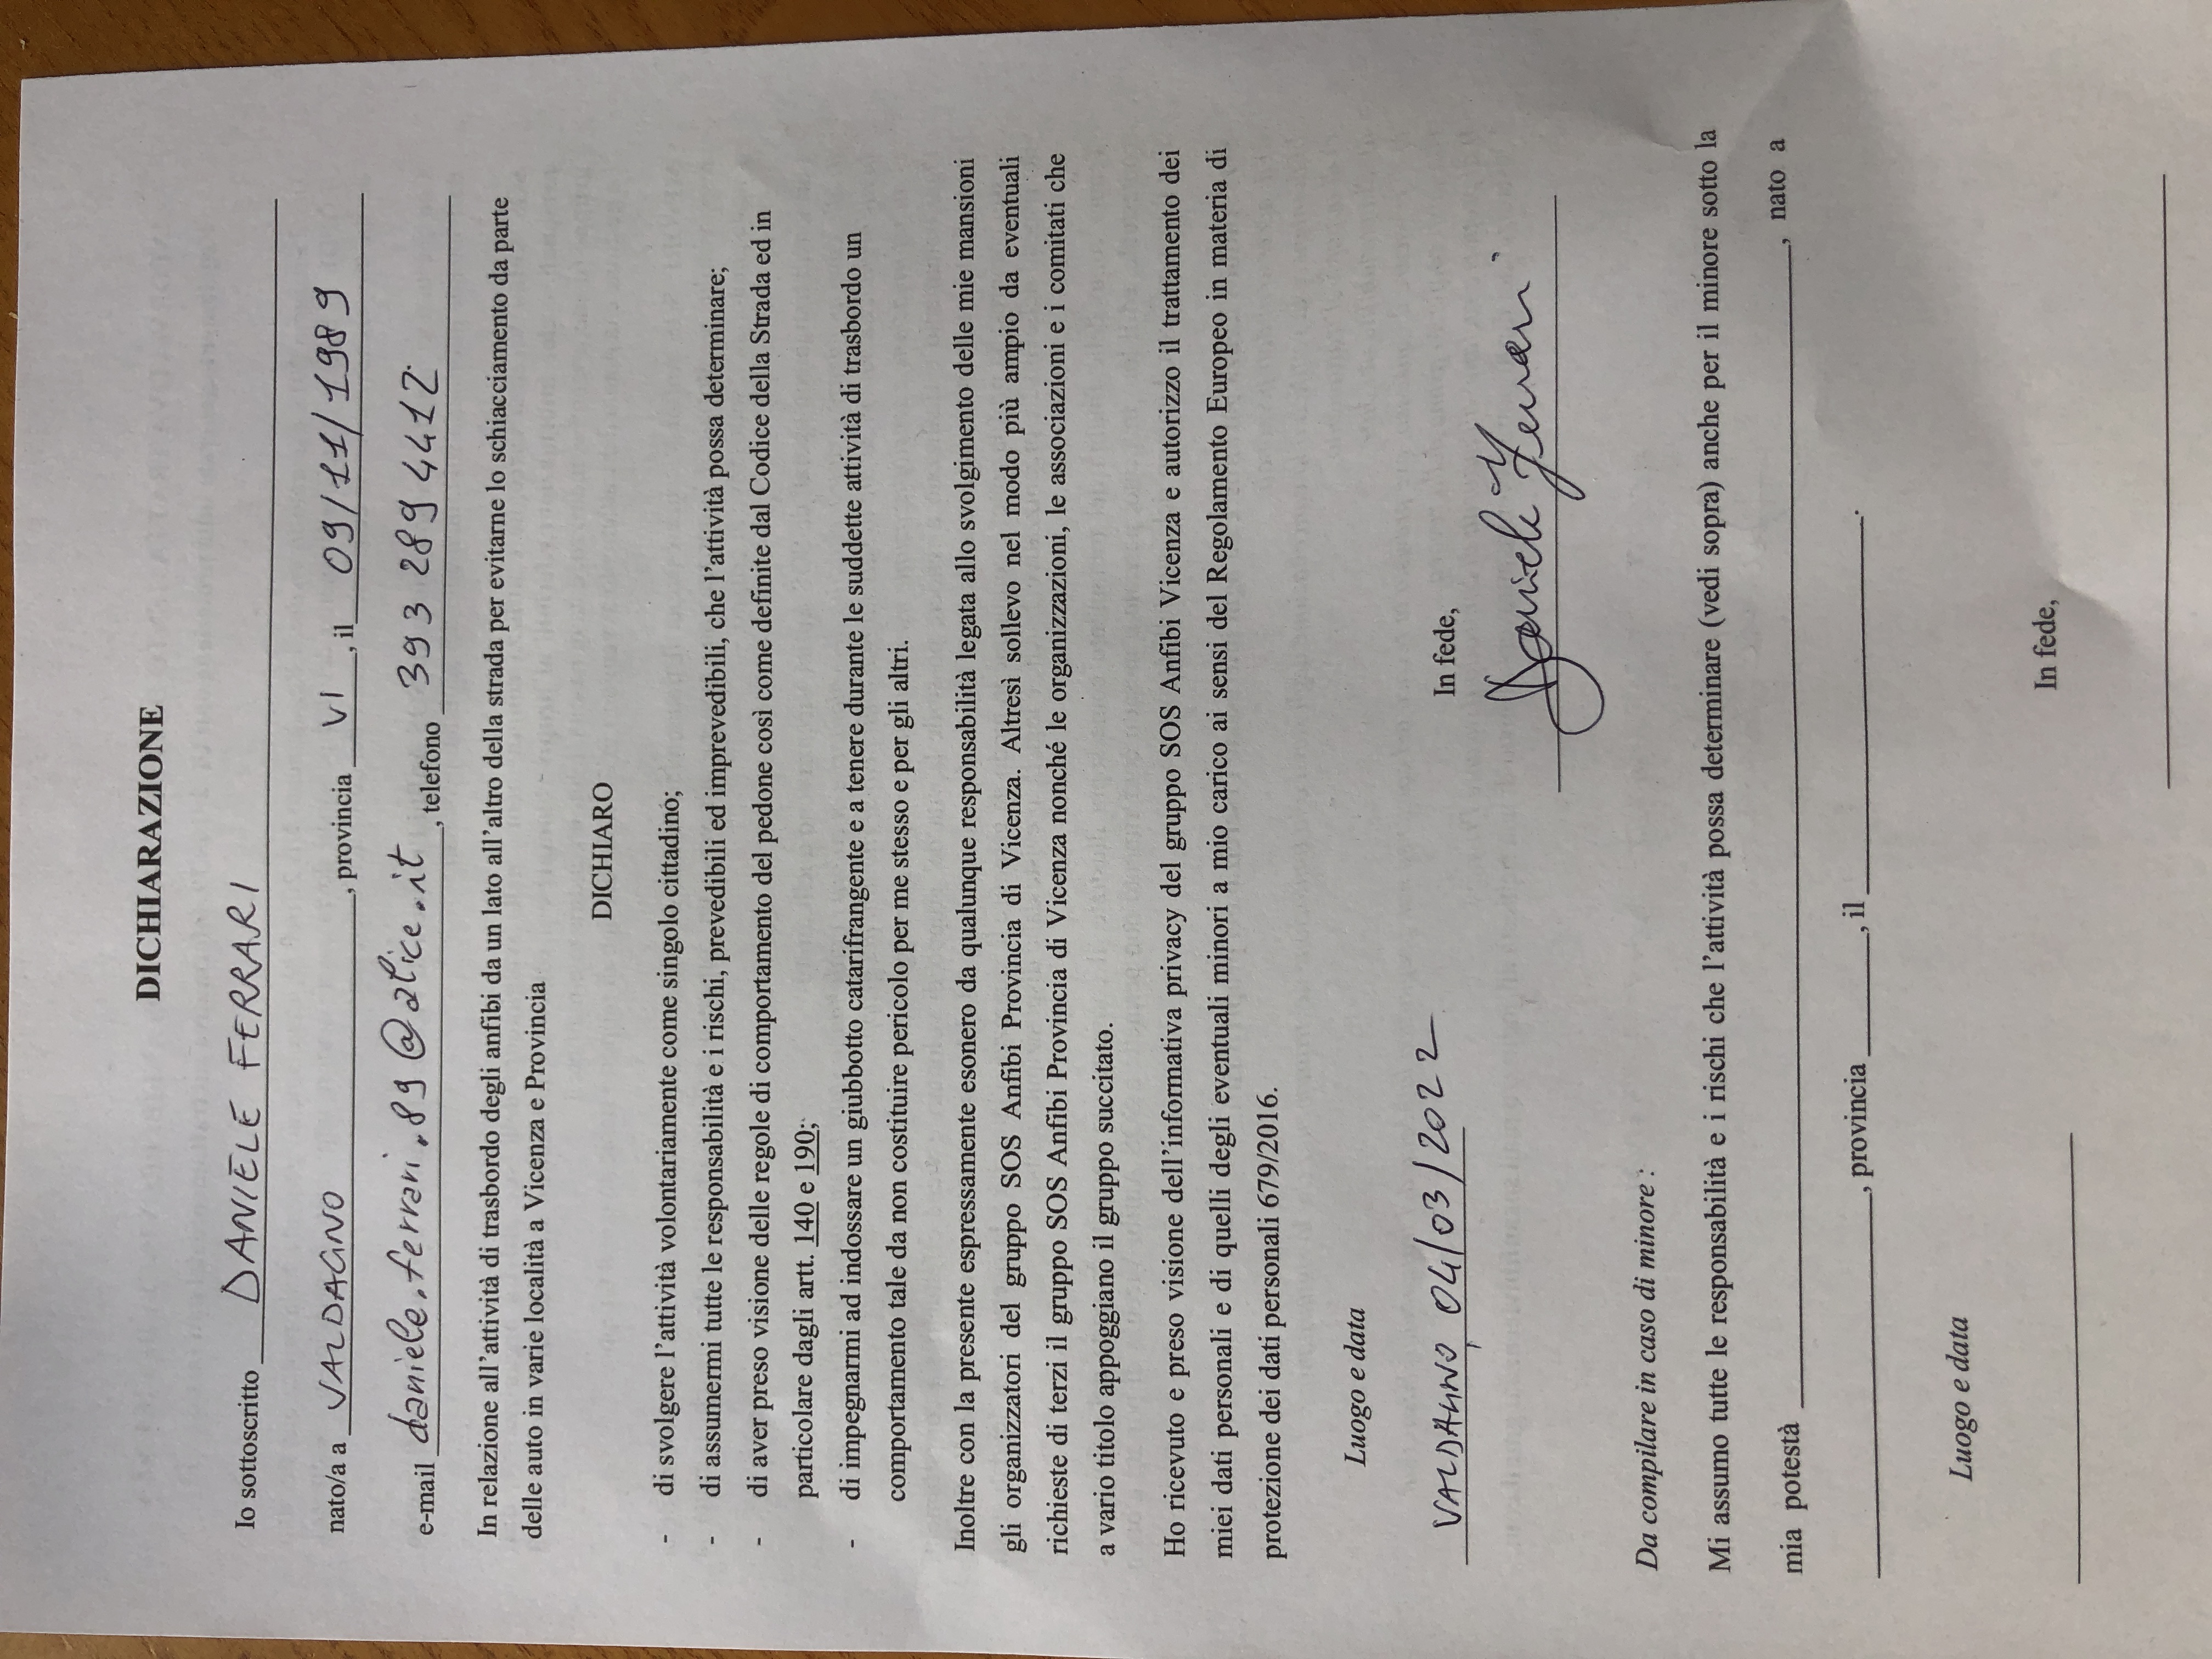 DICHIARAZIONE
Io sottoscritto DANIELE FERRARI
nato/a a VALDAGNO, provincia VI, il 09/11/1989
e-mail daniele.ferrari.89@alice.it, telefono 393 289 4412
In relazione all'attività di trasbordo degli anfibi da un lato all'altro della strada per evitarne lo schiacciamento da parte
delle auto in varie località a Vicenza e Provincia
DICHIARO
- di svolgere l'attività volontariamente come singolo cittadino;
- di assumermi tutte le responsabilità e i rischi, prevedibili ed imprevedibili, che l'attività possa determinare;
- di aver preso visione delle regole di comportamento del pedone così come definite dal Codice della Strada ed in
particolare dagli artt. 140 e 190;
- di impegnarmi ad indossare un giubbotto catarifrangente e a tenere durante le suddette attività di trasbordo un
comportamento tale da non costituire pericolo per me stesso e per gli altri.
Inoltre con la presente espressamente esonero da qualunque responsabilità legata allo svolgimento delle mie mansioni
gli organizzatori del gruppo SOS Anfibi Provincia di Vicenza. Altresì sollevo nel modo più ampio da eventuali
richieste di terzi il gruppo SOS Anfibi Provincia di Vicenza nonché le organizzazioni, le associazioni e i comitati che
a vario titolo appoggiano il gruppo succitato.
Ho ricevuto e preso visione dell'informativa privacy del gruppo SOS Anfibi Vicenza e autorizzo il trattamento dei
miei dati personali e di quelli degli eventuali minori a mio carico ai sensi del Regolamento Europeo in materia di
protezione dei dati personali 679/2016.
Luogo e data
VALDAGNO, 04/03/2022
In fede,
Daniele Ferrari
Da compilare in caso di minore :
Mi assumo tutte le responsabilità e i rischi che l'attività possa determinare (vedi sopra) anche per il minore sotto la
mia potestà , nato a
, provincia , il .
Luogo e data
In fede,